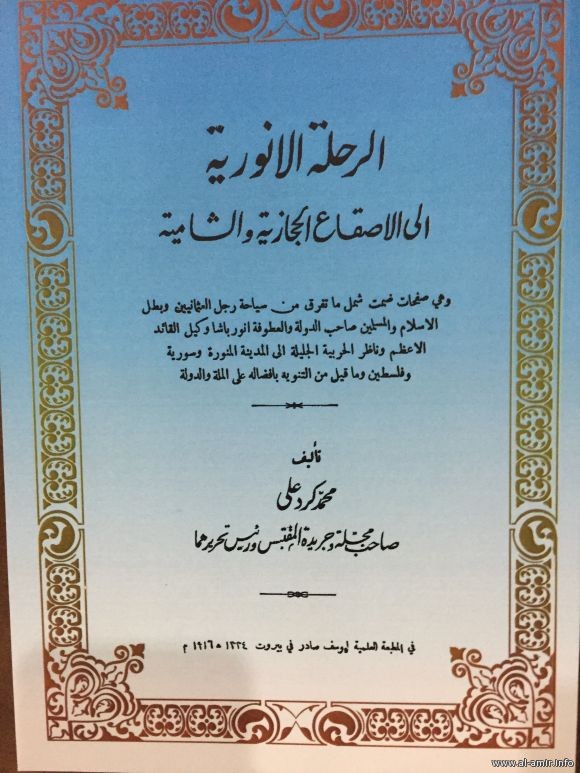 الرحلة الانورية
الى الاصقاع الحجازية والشامية
وهي صفحات ضمت شمل ما تفرق من سياحة رجل العثمانيين وبطل
الاسلام والمسلمين صاحب الدولة والعطوفة انور باشا وكيل القائد
الاعظم وناظر الحربية الجليلة الى المدينة المنورة وسورية
وفلسطين وما قيل من التنويه بافضاله على الملة والدولة
تأليف
محمد كرد علي
صاحب مجلة وجريدة المقتبس ورئيس تحريرهما
في المطبعة العلمية ليوسف صادر في بيروت ١٣٣٤ ه ١٩١٦ م
www.al-amir.info